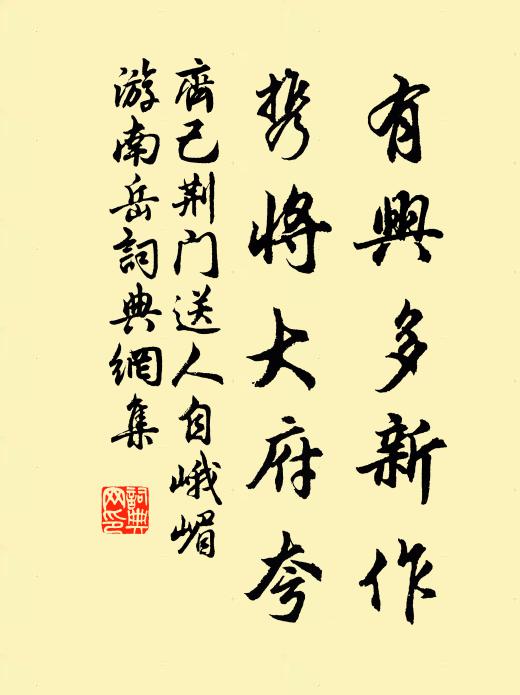 有興多新作
携將大府夸
齊己荆门送人自峨嵋
游南岳詞典網集
詞典網印